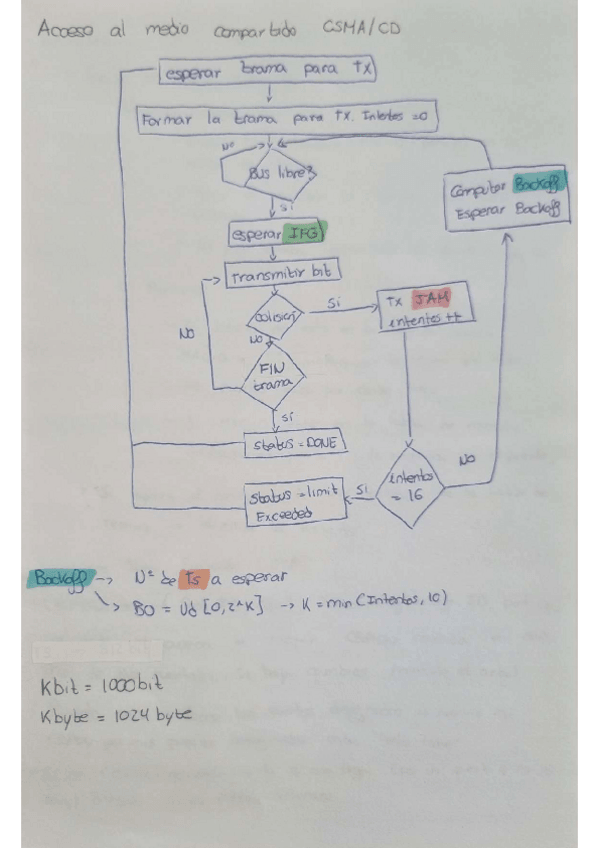 Acceso al medio compartido CSMA/CD
esperar trama para tx
Formar la trama para tx. Intentos = 0
No
Bus libre?
Sí
esperar IFG
transmitir bit
Colisión
Sí
tx JAM
intentos ++
Computar Backoff
Esperar Backoff
NO
NO
FIN
trama
Sí
status = DONE
intentos
= 16
NO
Si
status = limit
Exceeded
Backoff -> Nº de Ts a esperar
-> BO = Ud [0, 2^K] -> K = min (Intentos, 10)
Kbit = 1000 bit
Kbyte = 1024 byte